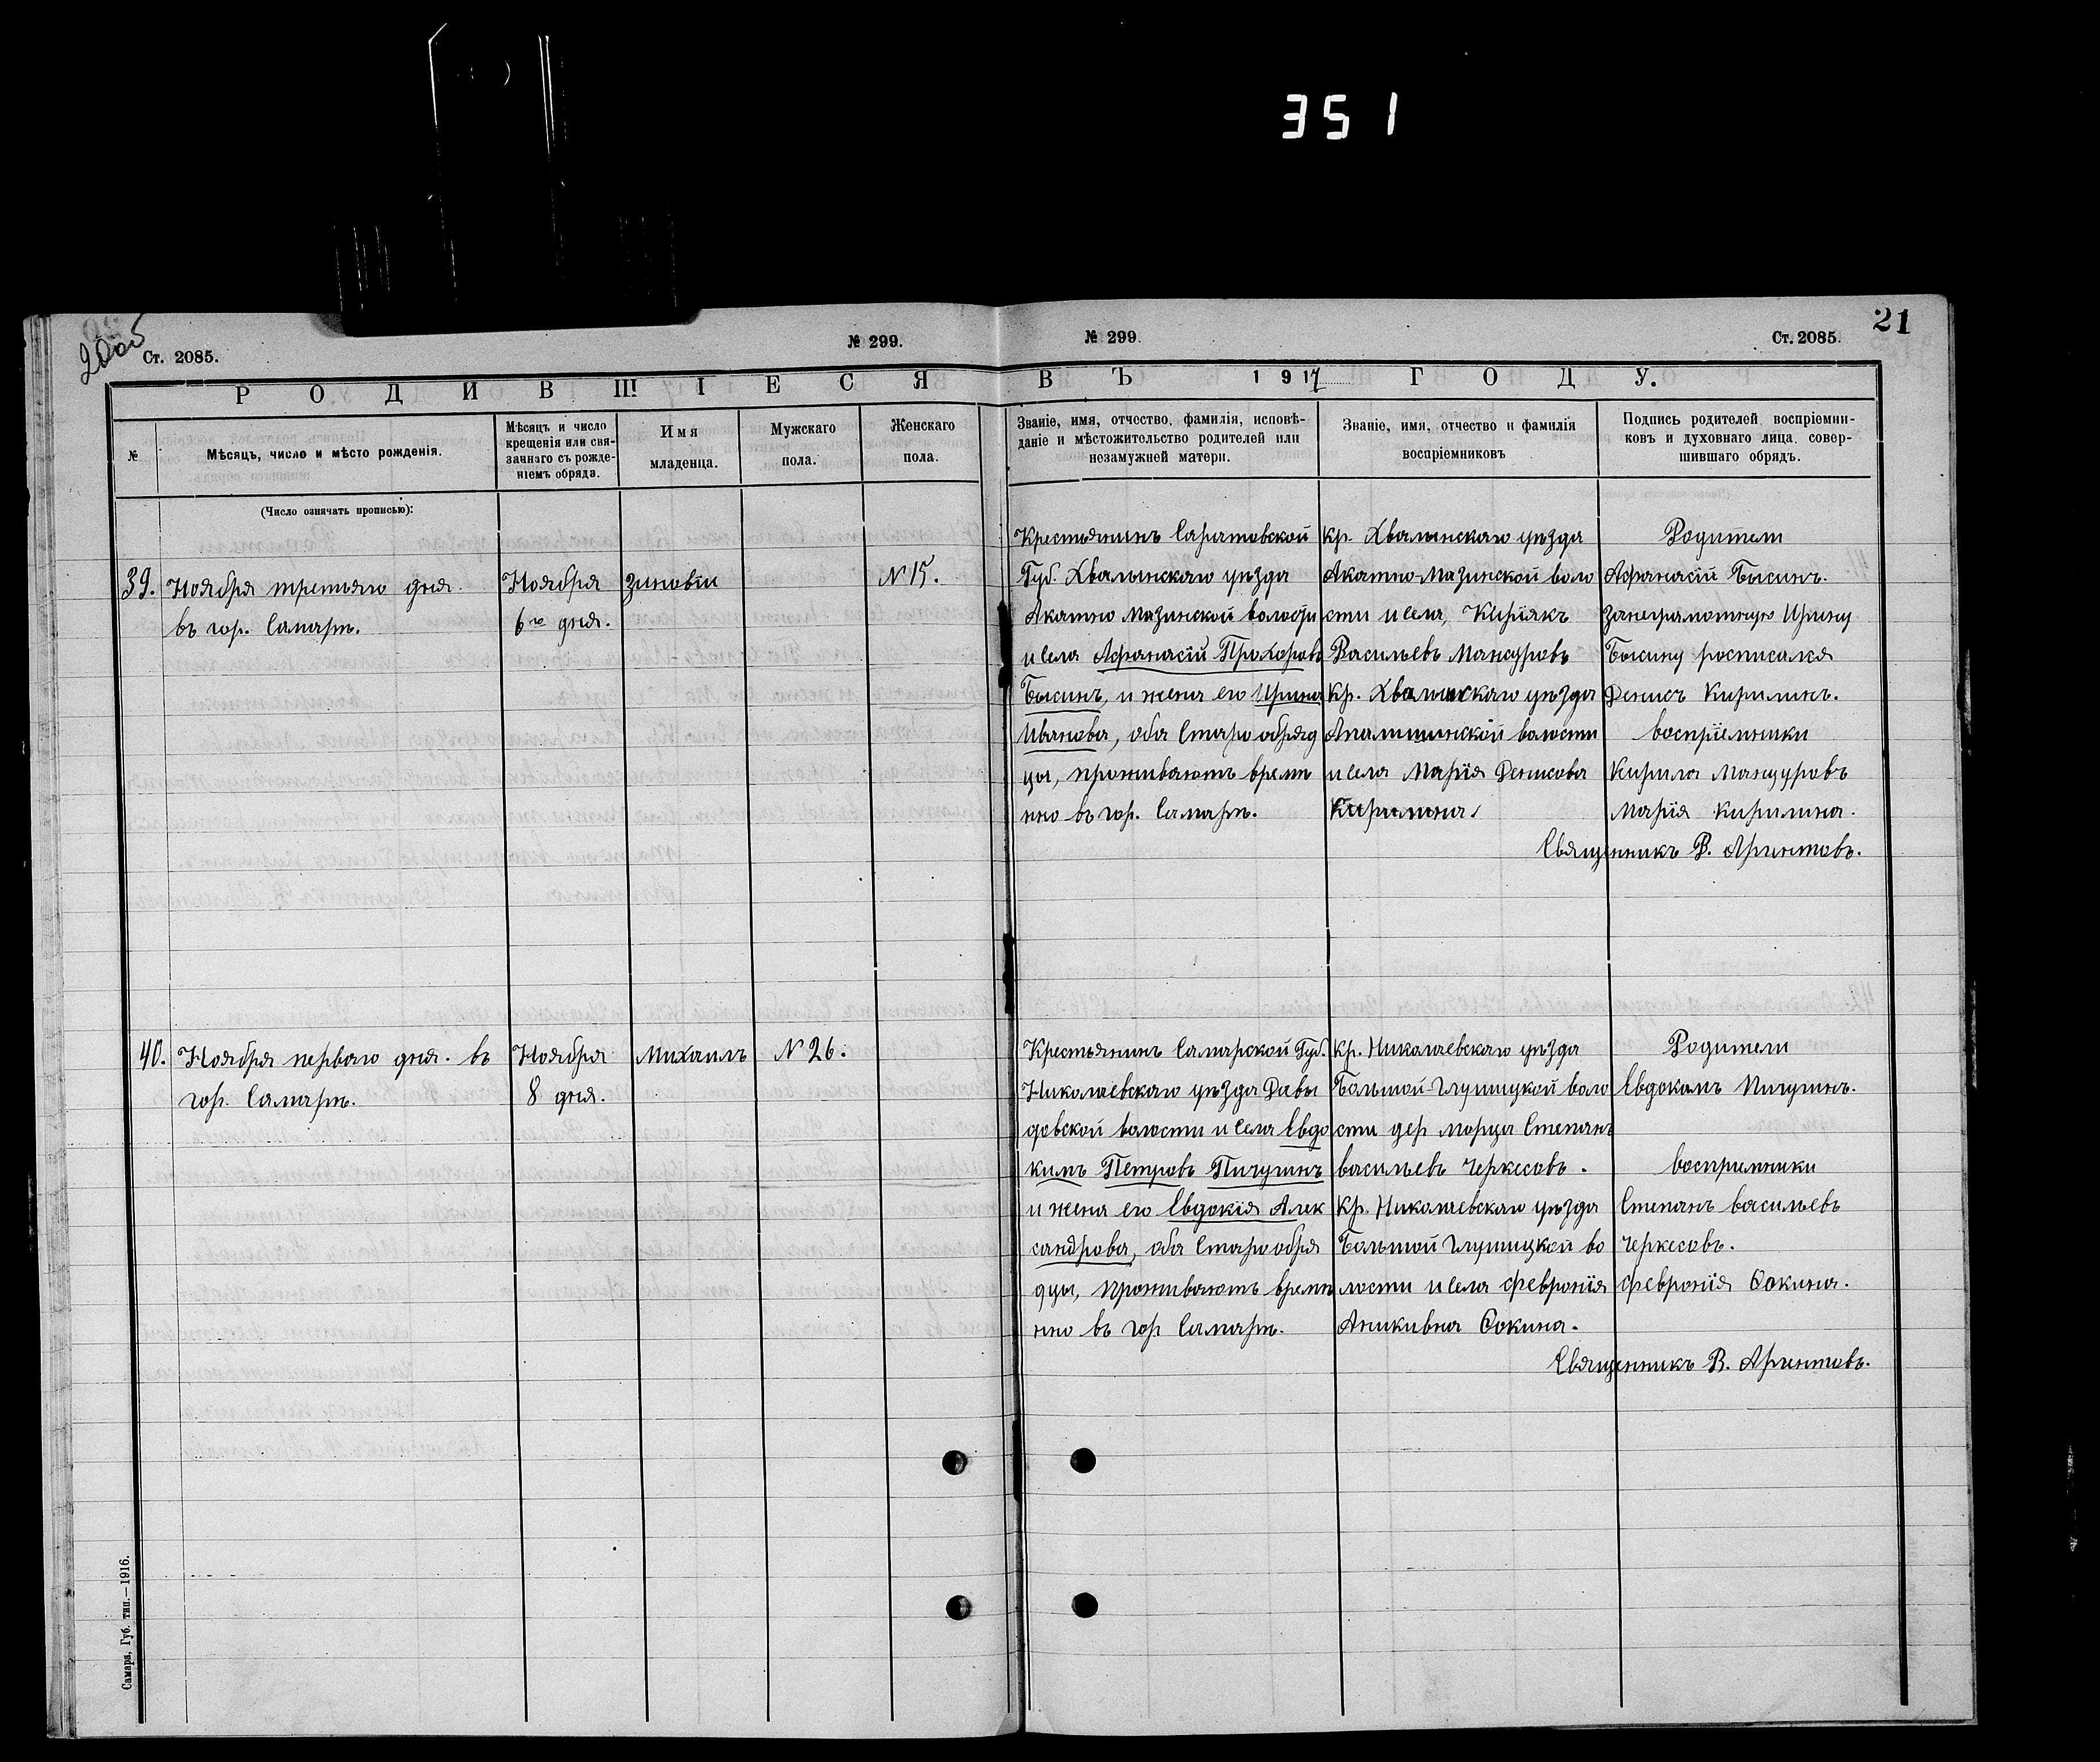 351
21
Ст. 2085.
№ 299.
№ 299.
Ст. 2085.
РОДИВШІЕСЯ ВЪ 1917 ГОДУ.
№
Мѣсяцъ, число и мѣсто рожденія.
Мѣсяцъ и число
крещенія или свя-
заннаго съ рожде-
ніемъ обряда.
Имя
младенца.
Мужскаго
пола.
Женскаго
пола.
Званіе, имя, отчество, фамилія, исповѣ-
даніе и мѣстожительство родителей или
незамужней матери.
Званіе, имя, отчество и фамилія
воспріемниковъ
Подпись родителей воспріемни-
ковъ и духовнаго лица, совер-
шившаго обрядъ.
(Число означать прописью):
39.
Ноября третьяго дня.
въ гор. Самарѣ.
Ноября
6го дня.
Зиновіи
N 15.
Крестьянинъ Саратовской
Губ. Хвалынскаго уѣзда
Акатно Мазинской волости
и села Афанасій Прохоровъ
Бысинъ, и жена его Ирина
Иванова, оба Старообряд
цы, проживаютъ времѣ
нно въ гор. Самарѣ.
Кр. Хвалынскаго уѣзда
Акатно-Мазинской воло
сти и села, Кириакъ
Васильевъ Манцуровъ
Кр. Хвалынскаго уѣзда
Апалишинской волости
и села Марія Денисова
Кирилина,
Родители
Афанасій Бысинъ.
За неграмотную Ирину
Бысину росписался
Денисъ Кирилинъ.
воспріемники
Кирила Манцуровъ
Марія Кирилина.
Священникъ В. Аринтовъ.
40.
Ноября перваго дня. въ
гор. Самарѣ.
Ноября
8 дня.
Михаилъ
N 26.
Крестьянинъ Самарской Губ.
Николаевскаго уѣзда Давы
довской волости и села Евдо
кимъ Петровъ Пичугинъ
и жена его Евдокія Алек
сандрова, оба Старообря
дцы, проживаютъ времѣ
нно въ гор Самарѣ.
Кр. Николаевскаго уѣзда
Большой-Глушицкой воло
сти дер Морца Степанъ
васильевъ Черкесовъ.
Кр. Николаевскаго уѣзда
Большой Глушицкой во
лости и села Февронія
Аникивна Сокина.
Родители
Евдокамъ Пичугинъ.
восприемники
Степанъ васильевъ
Черкесовъ.
Февронія Сокина.
Священникъ В. Аринтовъ.
Самара, Губ. тип.—1916.